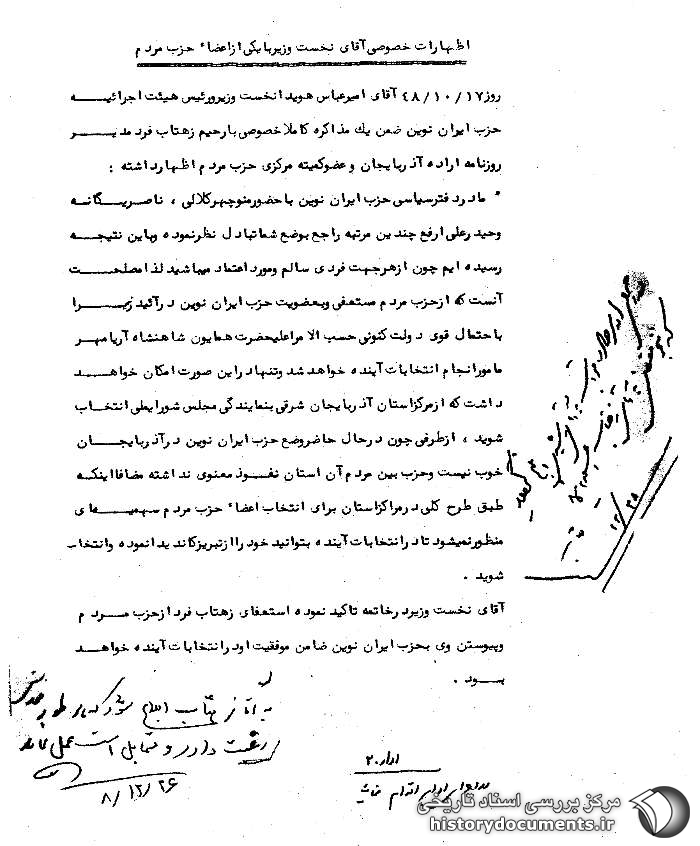 اظهارات خصوصی آقای نخست وزیر با یکی از اعضاء حزب مردم
روز ۴۸/۱۰/۱۷ آقای امیرعباس هویدا نخست وزیر و رئیس هیئت اجرائیه
حزب ایران نوین ضمن یك مذاکره کاملا خصوصی با رحیم زهتاب فرد مدیر
روزنامه اراده آذربایجان و عضو کمیته مرکزی حزب مردم اظهار داشته :
" ما در دفتر سیاسی حزب ایران نوین با حضور منوچهر کلالی ، ناصر یگانه
وحیدر علی ارفع چندین مرتبه راجع بوضع شما تبادل نظر نموده و باین نتیجه
رسیده ایم چون از هر جهت فردی سالم و مورد اعتماد میباشید لذا مصلحت
آنست که از حزب مردم مستعفی و بعضویت حزب ایران نوین در آئید زیرا
با حتمال قوی دولت کنونی حسب الامر اعلیحضرت همایون شاهنشاه آریامهر
مامور انجام انتخابات آینده خواهد شد و تنها در این صورت امکان خواهد
داشت که از مرکز استان آذربایجان شرقی بنمایندگی مجلس شورایملی انتخاب
شوید ، از طرفی چون در حال حاضر وضع حزب ایران نوین در آذربایجان
خوب نیست و حزب بین مردم آن استان نفوذ معنوی نداشته مضافا اینکه
طبق طرح کلی در مراکز استان برای انتخاب اعضاء حزب مردم سهمیه ای
منظور نمیشود تا در انتخابات آینده بتوانید خود را از تبریز کاندیدا نموده و انتخاب
شوید .
آقای نخست وزیر در خاتمه تاکید نموده استعفای زهتاب فرد از حزب مردم
و پیوستن وی بحزب ایران نوین ضامن موفقیت او در انتخابات آینده خواهد
بود .
رغبت دارد و متمایل است عمل نماید
۸/۱۲/۲۶
۱۲/۲۸
اداره ۲۰
اقدام نمائید
مرکز بررسی اسناد تاریخی
historydocuments.ir